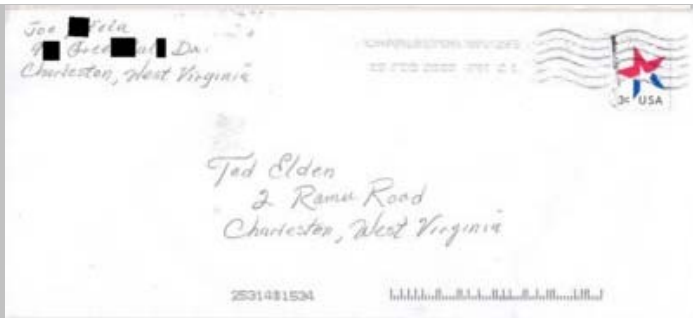 Joe
Dr.
Charleston, West Virginia
CHARLESTON WV 253
3c USA
Ted Elden
2 Ramu Road
Charleston, West Virginia
2531481534